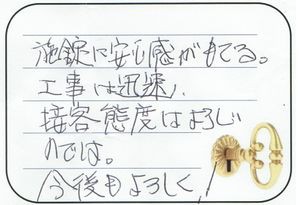 施錠に安心感がもてる。
工事は迅速、
接客態度はよろしい
のでは。
今後もよろしく